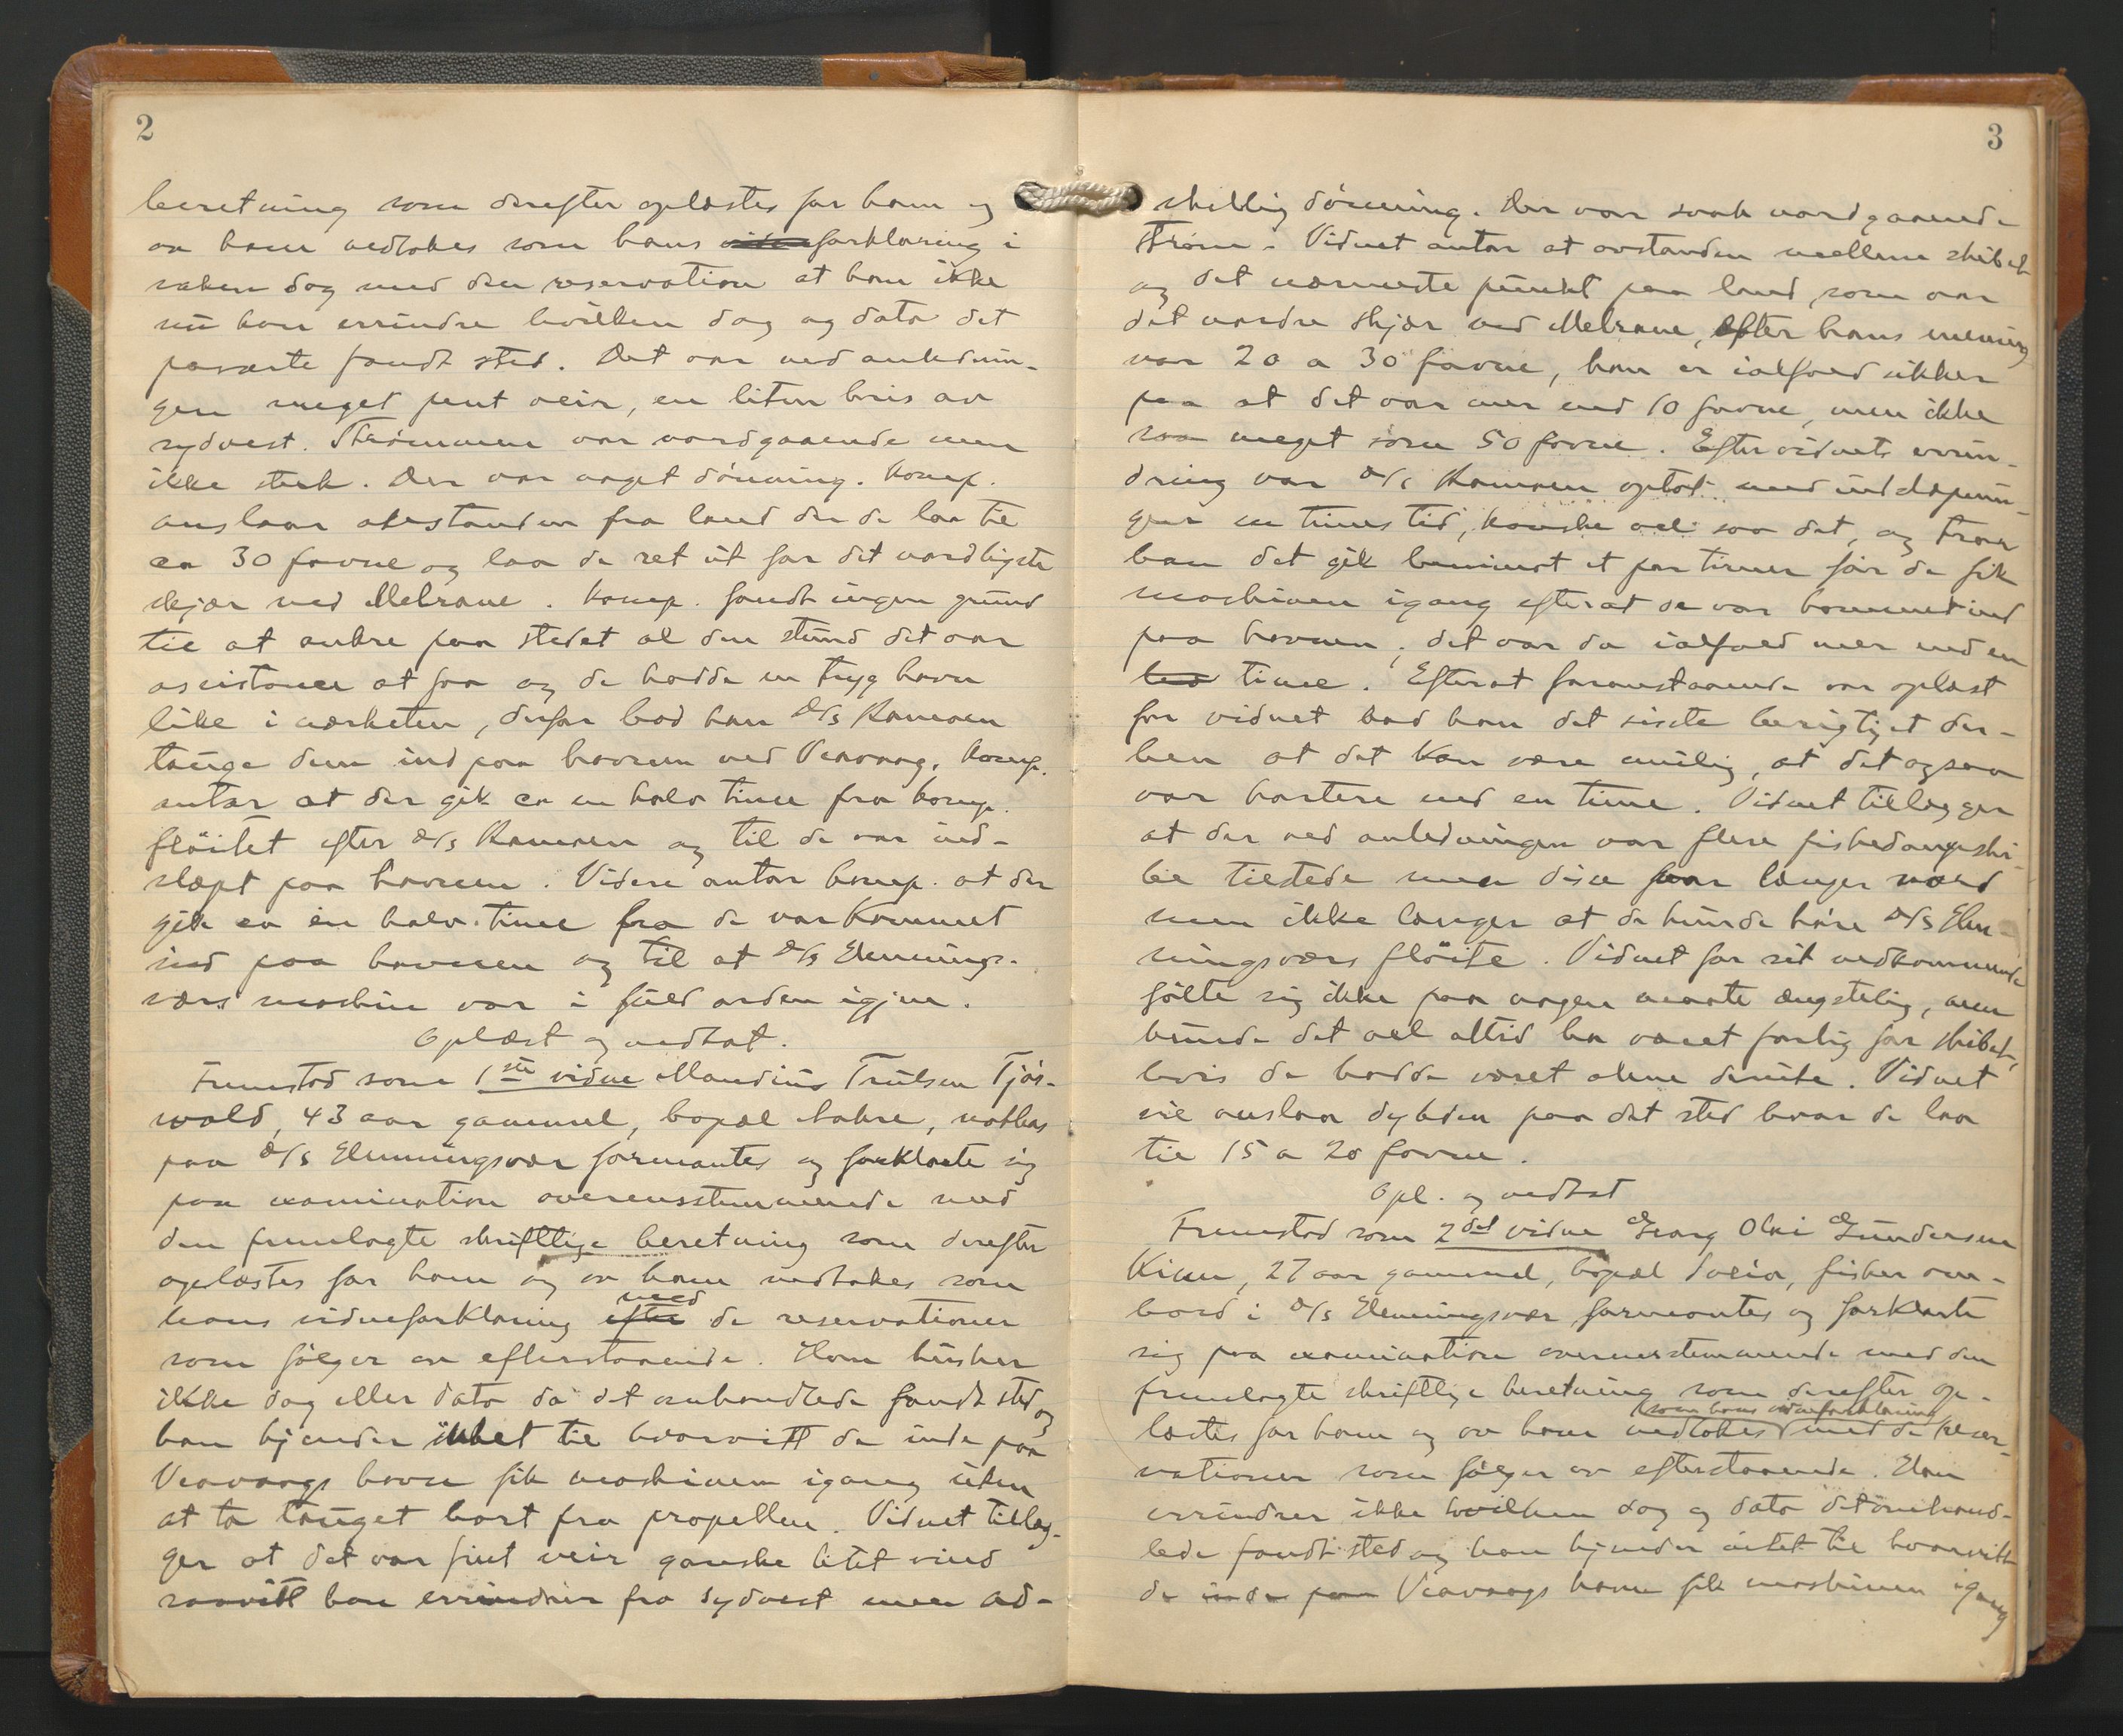 2
beretning som derefter oplæstes for ham og
av ham vedtokes som hans forklaring i
saken dog med den reservation at han ikke
nu kan erindre hvilken dag og dato det
passerte fandt sted. Det var ved anlednin-
gen meget pent veir, en liten bris av
sydvest. Strømmen var nordgaaende men
ikke sterk. Der var noget dønning. Komp.
anslaar avstanden fra land der de laa til
ca 30 favne og laa de ret ut for det nordligste
skjær ved Melrane. Komp. fandt ingen grund
til at ankre paa stedet al den stund det var
assistance at faa og de hadde en tryg havn
like i nærheten, derfor bad han D/s Ramoen
tauge dem ind paa havnen ved Veavaag. Komp.
antar at der gik ca en halv time fra komp.
fløitet efter D/s Ramoen og til de var ind-
slæpt paa havnen. Videre antar komp. at der
gik ca en halv time fra de var kommet
ind paa havnen og til at D/s Henningsvær
værs maskin var i fuld orden igjen.
Oplæst og vedtat.
Fremstod som 1ste vidne Maudius Trulsen Tjøs-
wold, 43 aar gammel, bopæl Aakre, notbas
paa D/s Henningsvær formantes og forklarte sig
paa examination overensstemmende med
den fremlagte skriftlige beretning som derefter
oplæstes for ham og av ham vedtokes som
hans vidneforklaring efter med de reservationer
som følger av efterstaaende. Han husker
ikke dag eller dato da det omhandlede fandt sted og
han kjender intet til hvorvitt de inde paa
Veavaags havn fik maskinen igang uten
at ta tauget bort fra propellen. Vidnet tillæg-
ger at det var fint veir ganske litet vind
saavitt han erindrer fra sydvest men ad-
3
skillig dønning. Der var svak nordgaaende
strøm. Vidnet antar at avstanden mellem skibet
og det nærmeste punkt paa land, som var
det nordre skjær ved Melrane, efter hans mening
var 20 a 30 favne, han er ialfald sikker
paa at det var mer end 10 favne, men ikke
saa meget som 50 favne. Efter vidnets erin-
dring var D/s Ramoen optat med indslæpnin-
gen en times tid, kanske vel saa det, og tror
han det gik beinimot et par timer før de fik
maskinen igang efterat de var kommet ind
paa havnen, det var da ialfald mer end en
time. Efterat foranstaaende var oplæst
for vidnet bad han det siste berigtiget der-
hen at det kan være mulig, at det ogsaa
var kortere end en time. Vidnet tillægger
at der ved anledningen var flere fiskedampski-
be tilstede men disse laa længer nord
men ikke længer at de kunde høre D/s Hen-
ningsværs fløite. Vidnet for sit vedkommende
følte sig ikke paa nogen maate ængstelig, men
kunde det vel altid ha været farlig for skibet,
hvis de hadde været alene derute. Vidnet
vil anslaa dybden paa det sted hvor de laa
til 15 a 20 favne.
Opl. og vedtat
Fremstod som 2det vidne Georg Olai Gundersen
Kien, 27 aar gammel, bopæl Aveia, fisker om-
bord i D/s Henningsvær, formantes og forklarte
sig paa examination overensstemmende med den
fremlagte skriftlige beretning som derefter op-
læstes for ham og av ham vedtokes som hans vidneforklaring med de reser-
vationer som følger av efterstaaende. Han
erindrer ikke hvilken dag og dato det omhand-
lede fandt sted og han kjender intet til hvorvitt
de inde paa Veavaags havn fik maskinen igang